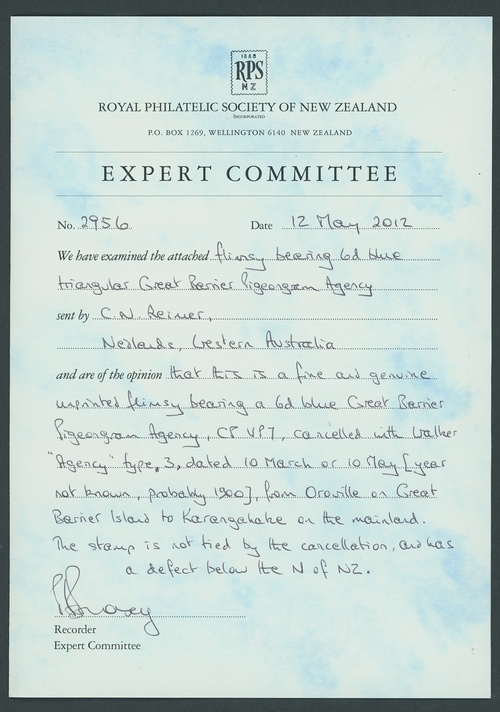 1888
RPS
NZ
ROYAL PHILATELIC SOCIETY OF NEW ZEALAND
INCORPORATED
P.O. BOX 1269, WELLINGTON 6140 NEW ZEALAND
EXPERT COMMITTEE
No. 2956 Date 12 May 2012
We have examined the attached flimsy bearing 6d blue
triangular Great Barrier Pigeongram Agency
sent by C.N. Reimer,
Nedlands, Western Australia
and are of the opinion that this is a fine and genuine
unprinted flimsy bearing a 6d blue Great Barrier
Pigeongram Agency, CP VP7, cancelled with Walker
"Agency" type 3, dated 10 March or 10 May [year
not known, probably 1900], from Oroville on Great
Barrier Island to Karangahake on the mainland.
The stamp is not tied by the cancellation, and has
a defect below the N of NZ.
Recorder
Expert Committee